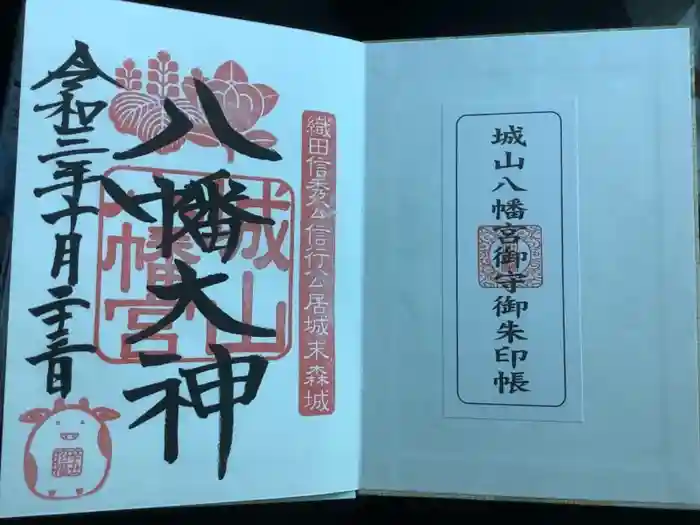 城山八幡宮御守御朱印帳
織田信秀公信行公居城末森城
八幡大神
城山八幡宮
令和三年十月二十三日